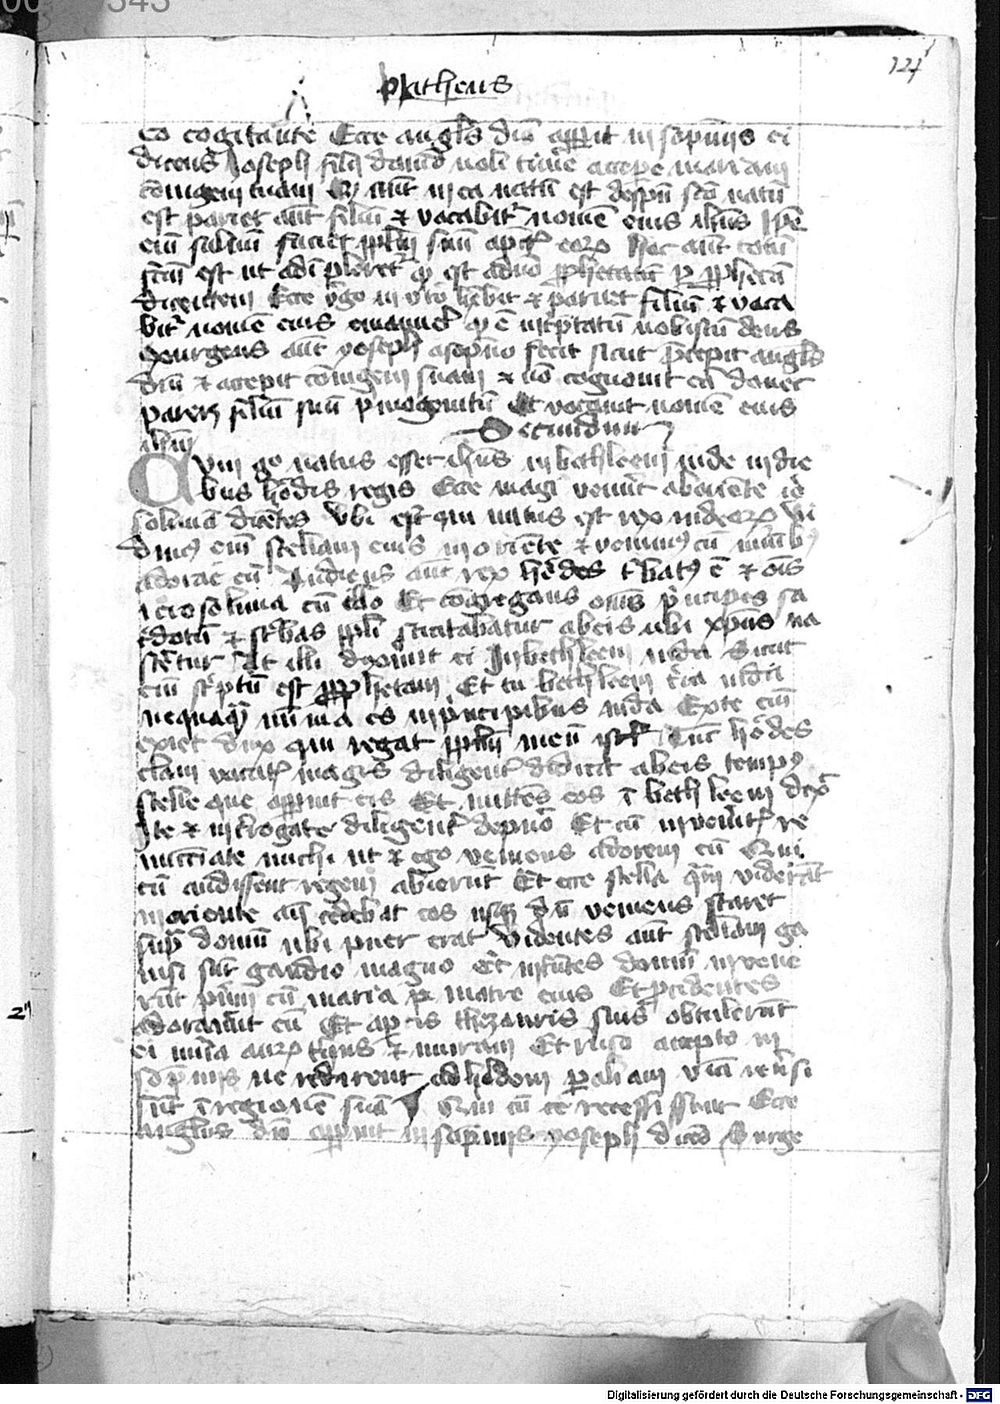 Matheus
127
eo cogitante Ecce angls dni apparuit in sompniis ei
dicens Joseph fili dauid noli timere accipe mariam
coniugem tuam Qd aut in ea natu est de spu sco natu
est pariet aut filiu et vocabit nomen eius ihus Ipe
eni saluu faciet pplm suu a pctis eor Hoc aut totu
fcm est ut adimpleret qd est a dno pphetatu p pphetam
dicentem Ecce virgo in utero hebit et pariet filiu et voca
bit nomen eius emanuel qd e intptatu nobiscu deus
exurgens aut yoseph a sopno fecit sicut pcepit angls
dni et accepit coniugem suam et no cognouit ea donec
pareret filiu suu pmogenitu Et vocauit nomen eius
ihm Secundum
Cum go natus esset ihus in bethleem iude in die
bus herodis regis Ecce magi venerut ab oriente iero
solima dicentes Vbi est qui natus est rex iudeorum Vi
dimus eni stellam eius in oriente et venimus cu munibus
adorare eu Audiens aut rex herodes turbatus e et omis
ierosolima cu illo Et congregans omes principes sa
cerdotu et scribas ppli sciscitabatur ab eis ubi xpus na
sceretur At illi dixerunt ei In bethleem iuda Sicut
eni scriptu est p pphetam Et tu bethleem terra iuda
nequaquam minima es in principibus iuda Ex te eni
exiet dux qui regat pplm meu isrl Tunc herodes
clam vocatis magis diligenter didicit ab eis tempus
stelle que apparuit eis Et mittens eos i bethleem dixit
Ite et interrogate diligenter de puero Et cu inveneritis re
nuncciate michi ut et ego veniens adorem eu Qui
cu audissent regem abierunt Et ecce stella quam viderant
in oriente antecedebat eos usque du veniens staret
supra domu ubi puer erat Videntes aut stellam ga
uisi sut gaudio magno Et intrantes domu invene
rut pueru cu maria matre eius Et pcidentes
adorauerut eu Et apertis thezauris suis obtulerunt
ei munera auru thus et mirram Et responso accepto in
sompniis ne redirent ad herodem p aliam viam reuersi
sunt i regionem suam Qui cu recessissent Ecce
Anglus dni apparuit in sompniis yoseph dicens Surge
Digitalisierung gefördert durch die Deutsche Forschungsgemeinschaft - DFG